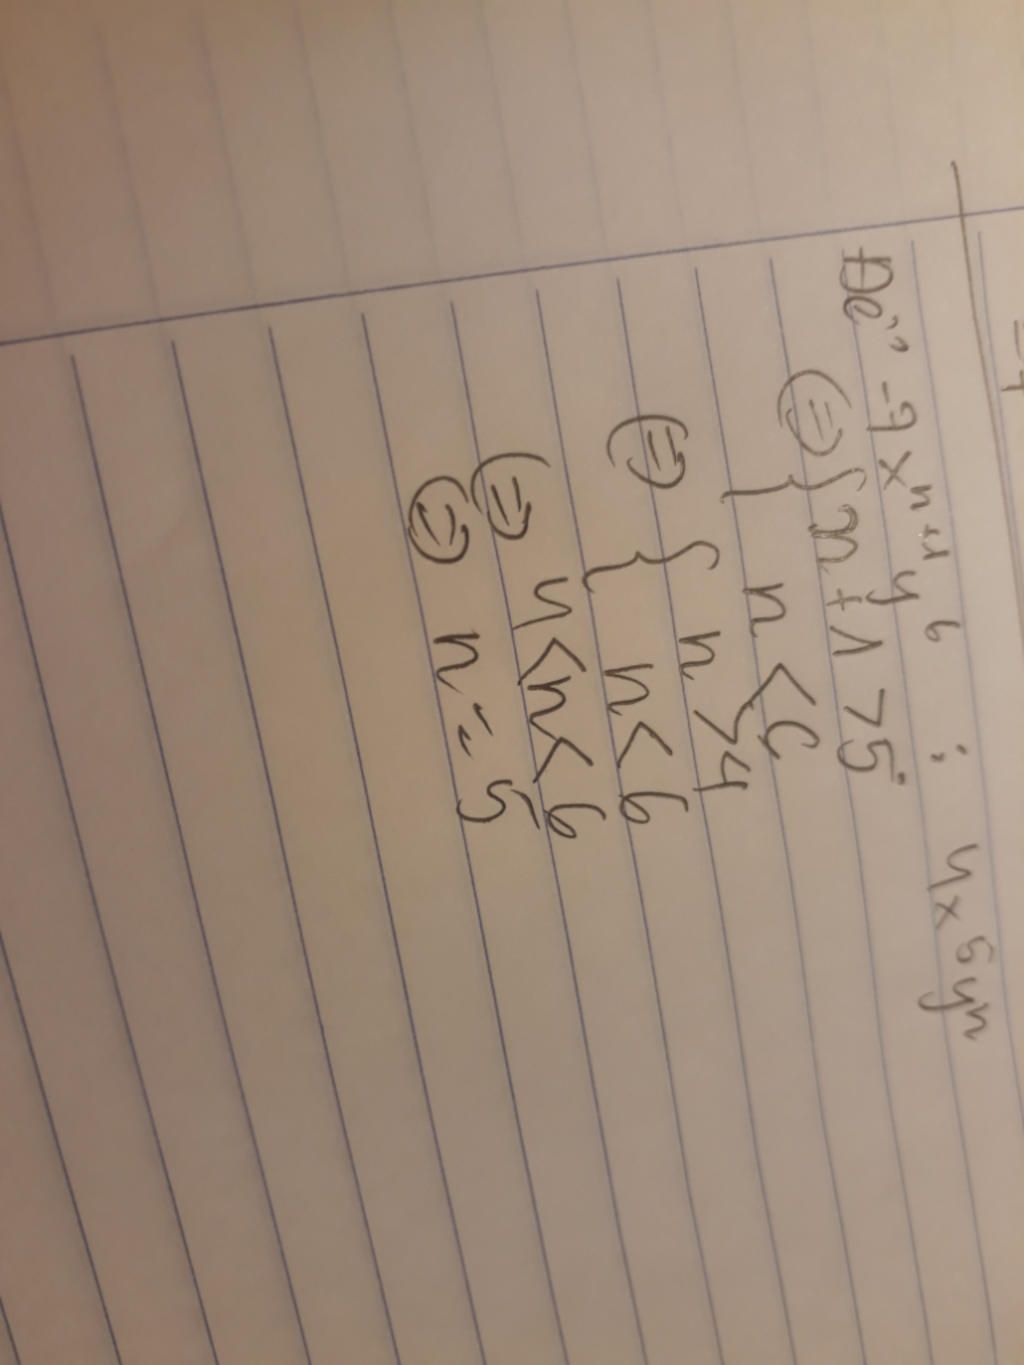 Để -7x^{n+1}y^6 ⋮ 4x^5y^n
⇔ { n+1 > 5
n < 6
⇔ { n > 4
n < 6
⇔ 4 < n < 6
⇔ n = 5